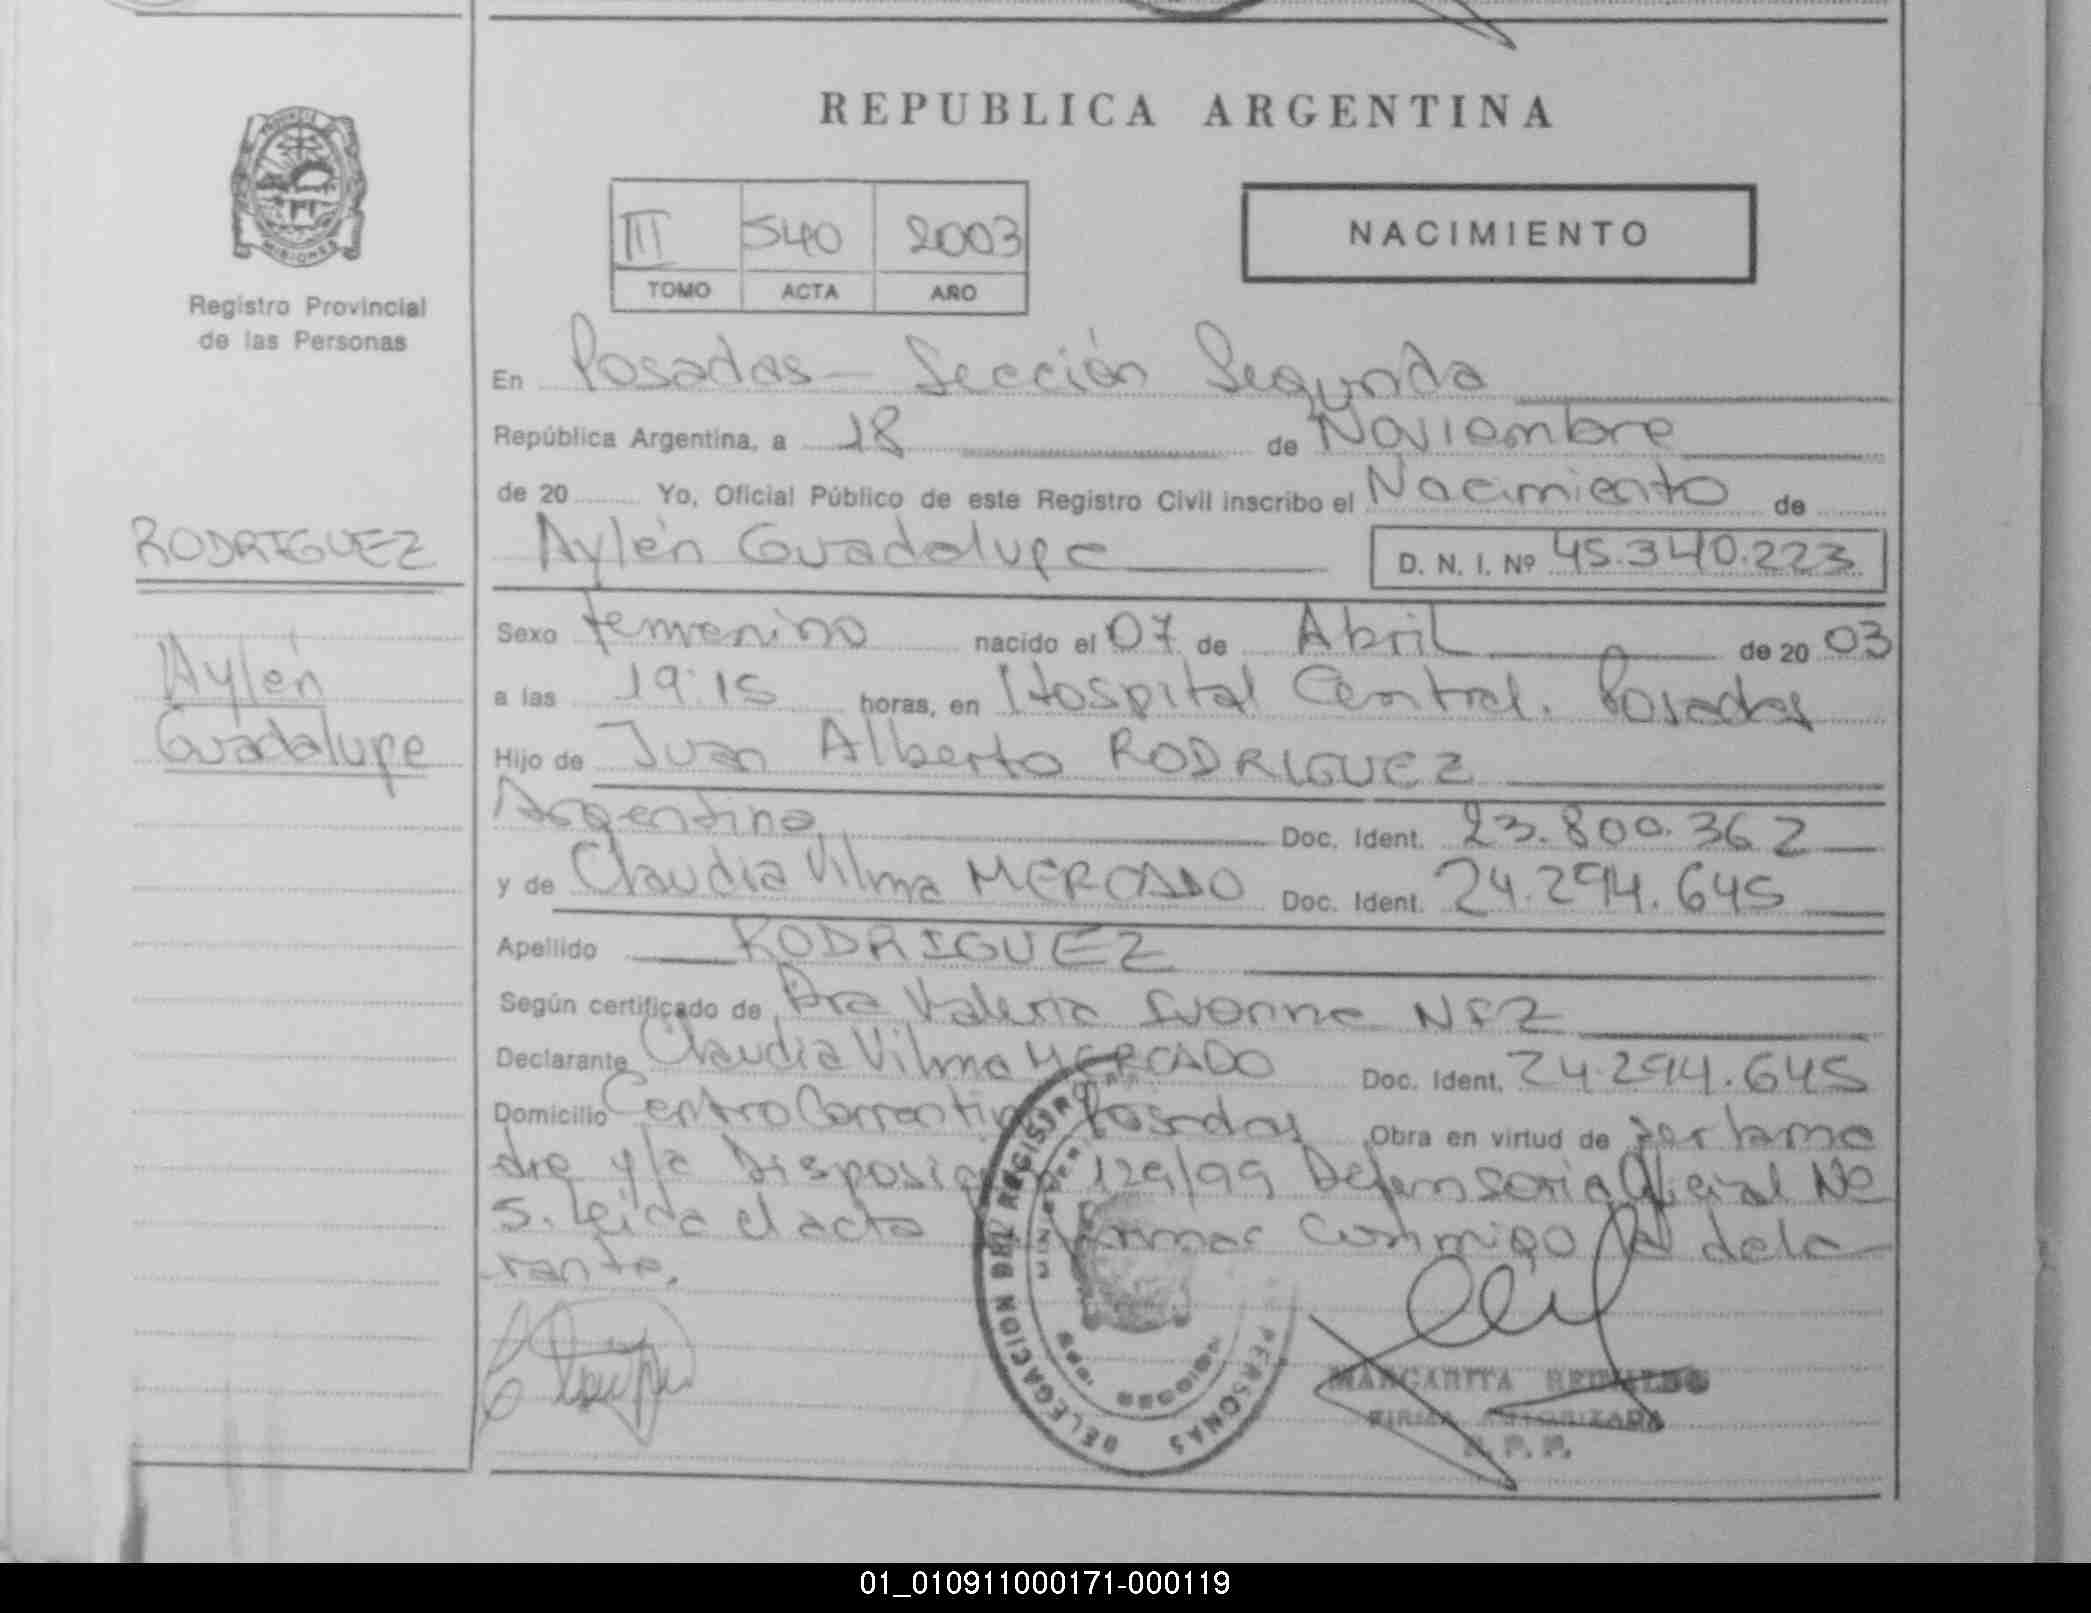 REPUBLICA ARGENTINA
PROVINCIA DE
MISIONES
Registro Provincial
de las Personas
III 540 2003
TOMO ACTA AÑO
NACIMIENTO
En Posadas - Sección Segunda
República Argentina, a 18 de Noviembre
de 20 Yo, Oficial Público de este Registro Civil inscribo el Nacimiento de
RODRIGUEZ
Aylén Guadalupe D. N. I. Nº 45.340.223
Sexo femenino nacido el 07 de Abril de 20 03
Aylén
Guadalupe
a las 19:15 horas, en Hospital Central. Posadas
Hijo de Juan Alberto RODRIGUEZ
Argentino Doc. Ident. 23.800.362
y de Claudia Vilma MERCADO Doc. Ident. 24.294.645
Apellido RODRIGUEZ
Según certificado de Dra Valeria Ivonne
Declarante Claudia Vilma MERCADO Doc. Ident. 24.294.645
Domicilio Centro Correntino Posadas Obra en virtud de ser la ma
dre y/a Disposición 129/99 Defensoria Oficial Nº
5. Leida el acta firmar conmigo la decla
rante.
DELEGACION DEL REGISTRO PERSONAS
MISIONES
MARGARITA
FIRMA AUTORIZADA
R. P. P.
01_010911000171-000119